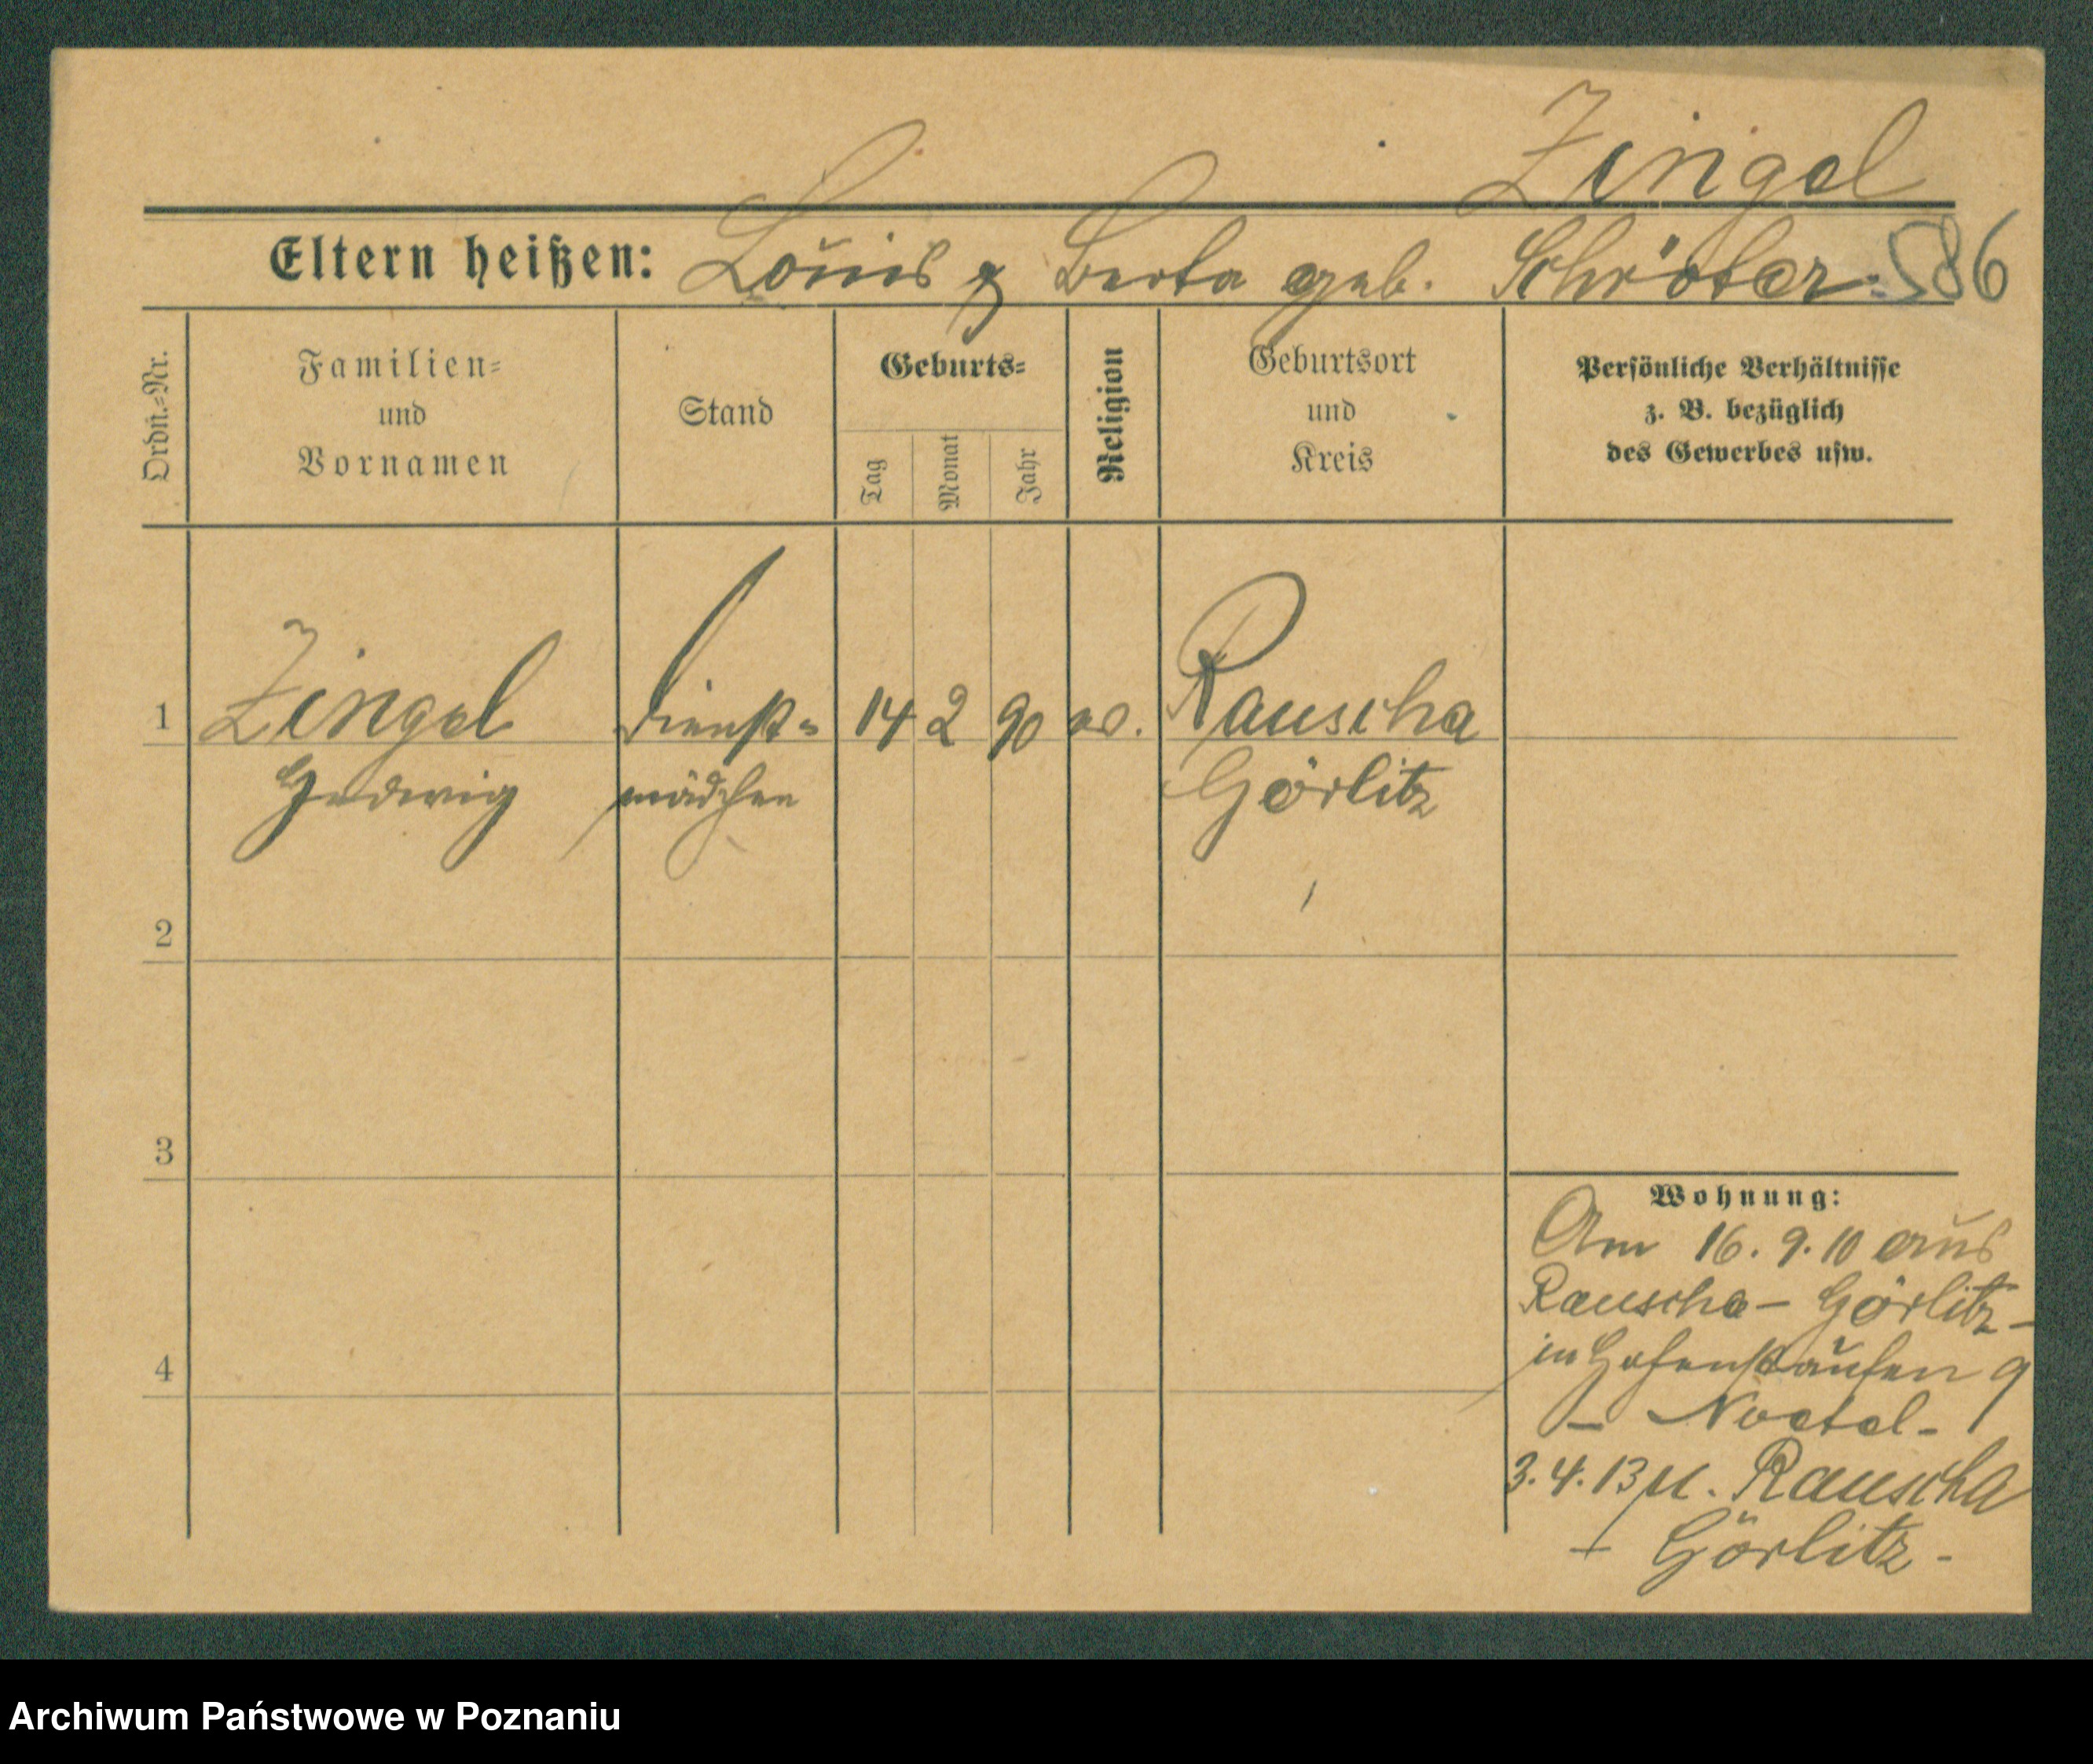 Zingel
Eltern heißen: Louis & Berta geb. Schröter. 586
Ordn.=Nr. Familien= und Vornamen Stand Geburts= Tag Monat Jahr Religion Geburtsort und Kreis Persönliche Verhältnisse z. B. bezüglich des Gewerbes usw.
1 Zingel Dienst= 14 2 90 ev. Rauscha
Hedwig mädchen Görlitz
2
3
4
Wohnung:
Am 16. 9. 10 aus
Rauscha – Görlitz –
in Hohenstaufen 9
– Noetel –
3. 4. 13 n. Rauscha
Görlitz –
Archiwum Państwowe w Poznaniu